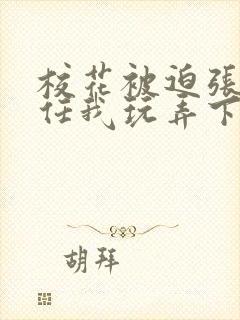 校花被迫張
任我玩弄下
胡拜